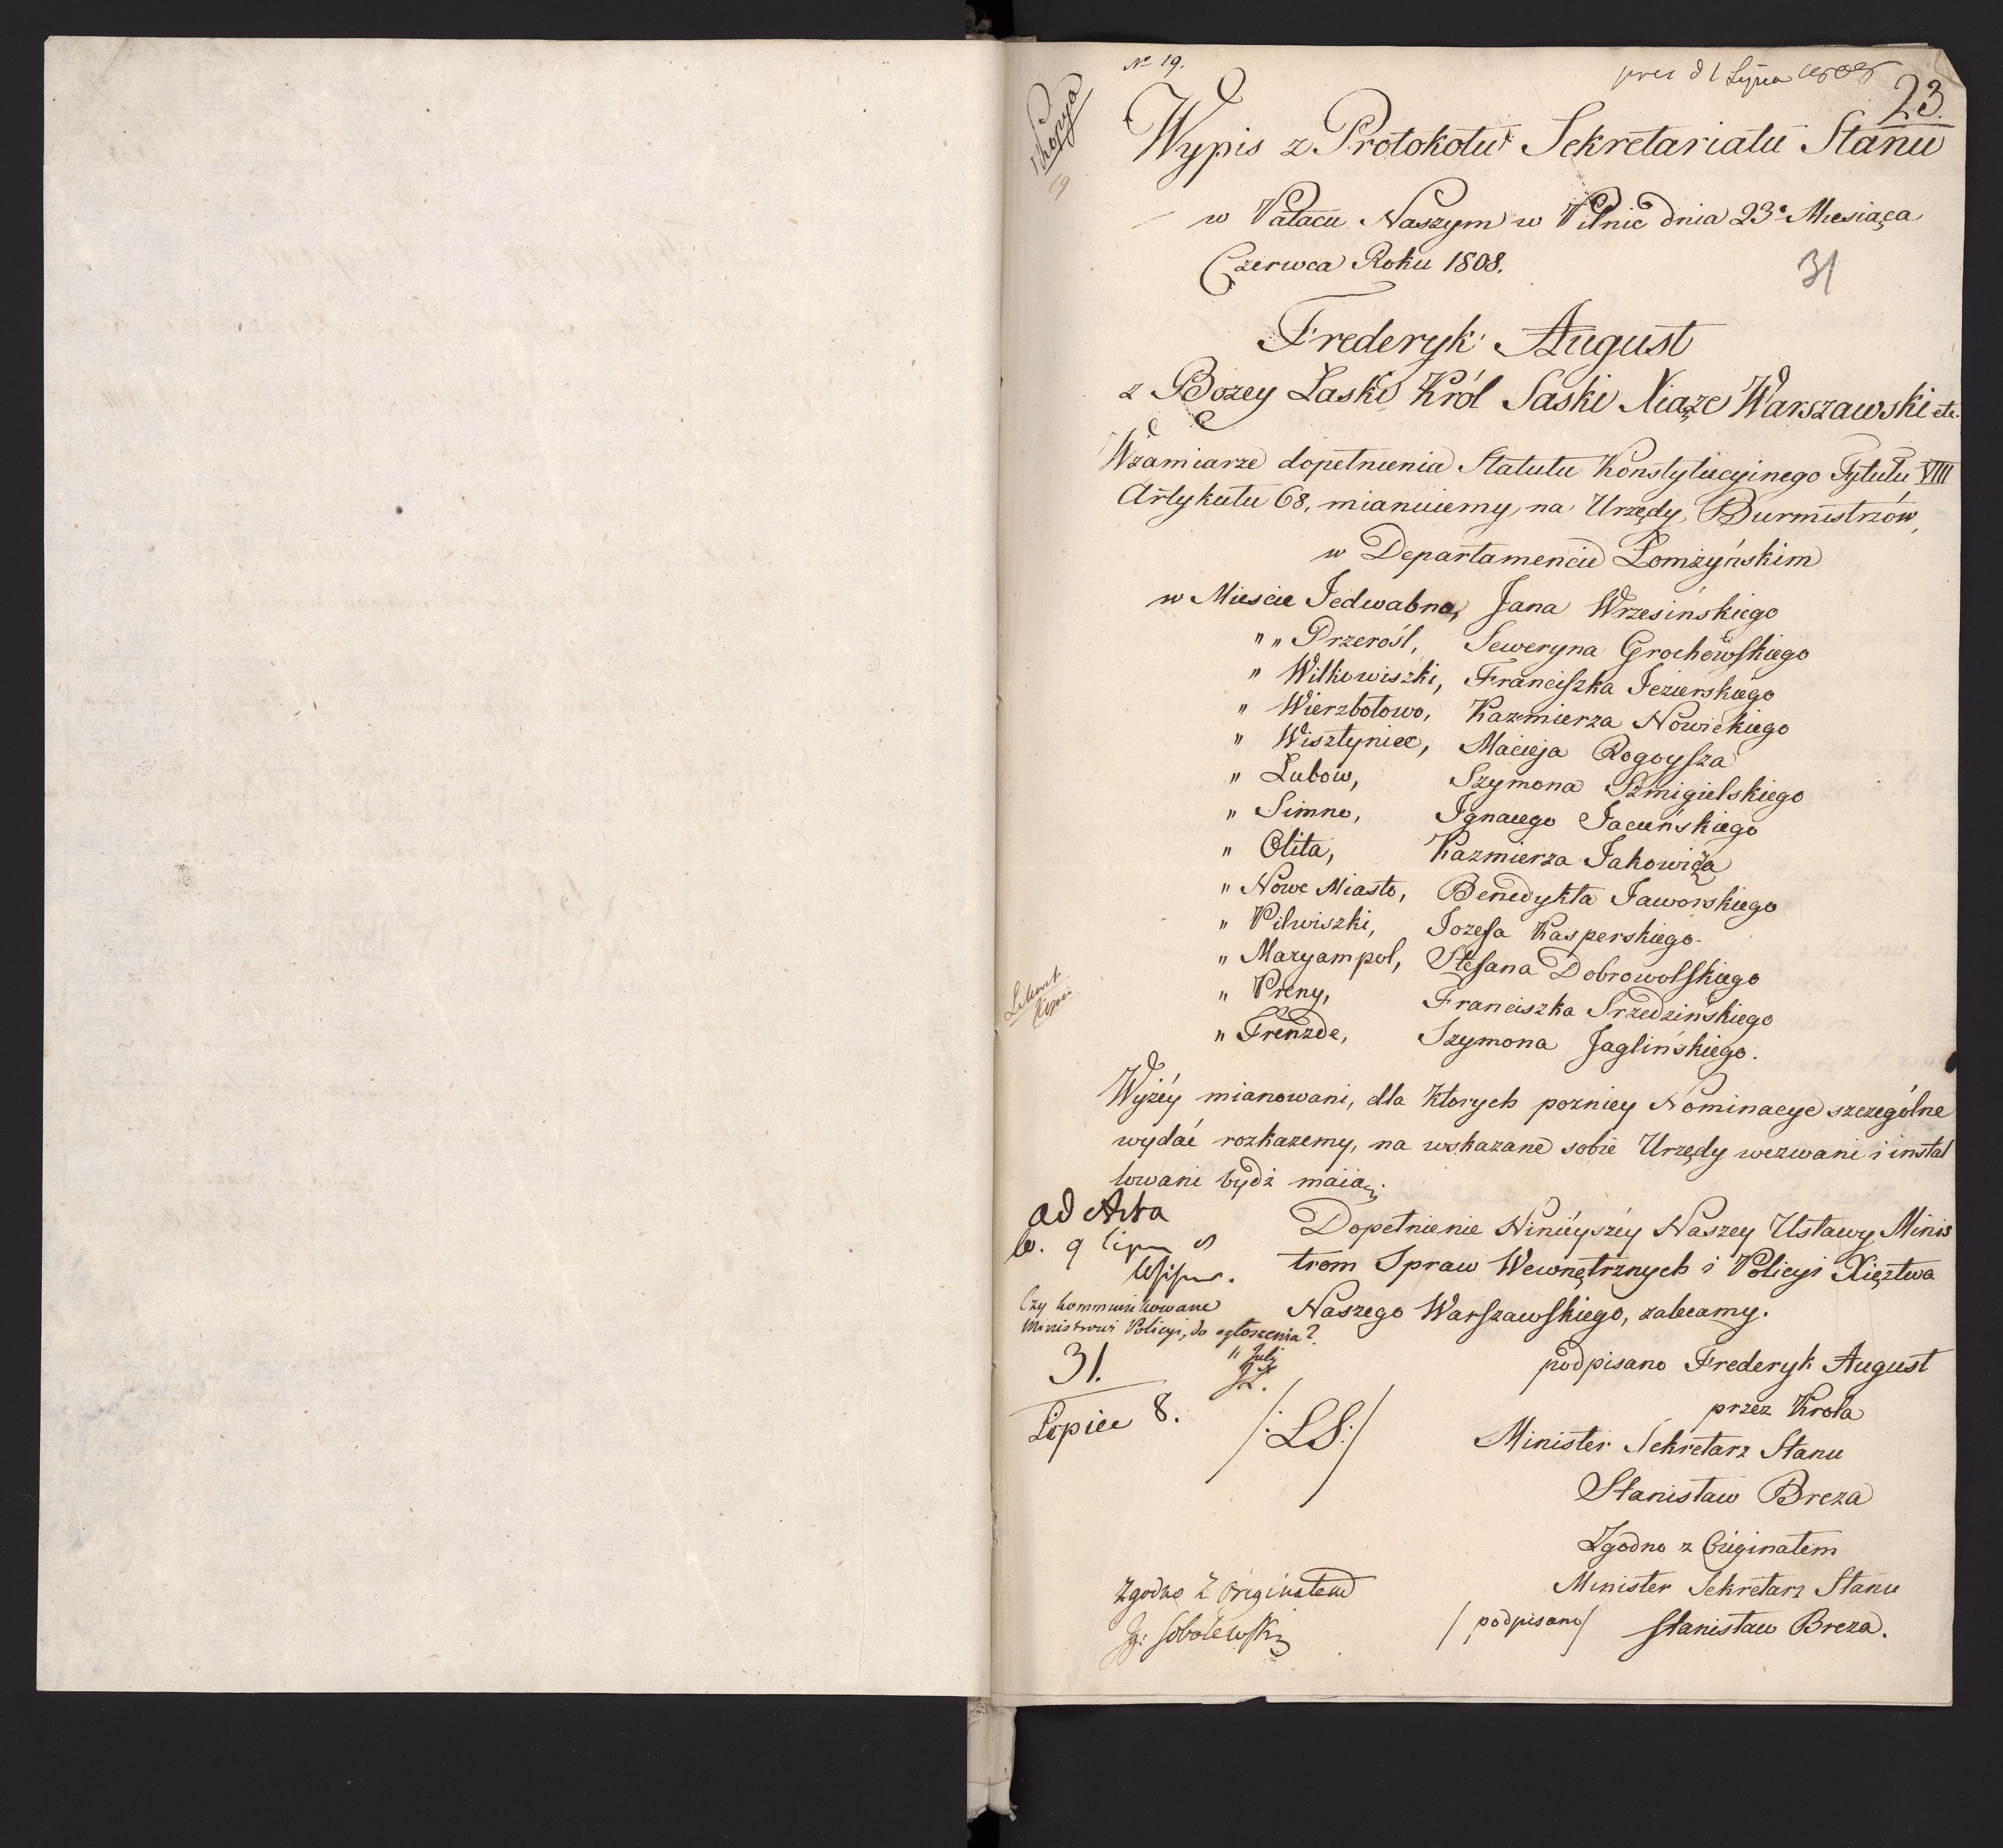 No 19.
pres d 1 Lipca 1808
23.
Kopya
19
Wypis z Protokołu Sekretariatu Stanu
w Pałacu Naszym w Pilnic dnia 23o Miesiąca
Czerwca Roku 1808.
31
Frederyk August
z Bozey Łaski Król Saski Xiąże Warszawski etc.
W zamiarze dopełnienia Statutu Konstytucyinego Tytułu VIII
Artykułu 68, mianuiemy na Urzędy Burmistrzów,
w Departamencie Łomżyńskim
w Miescie Jedwabno, Jana Wrzesinskiego
" " Przerośl, Seweryna Grochowskiego
" Wilkowiszki, Franciszka Jezierskiego
" Wierzbołowo, Kazmierza Nowickiego
" Wisztyniec, Macieja Rogoysza
" Lubow, Szymona Szmigielskiego
" Simno, Ignacego Jacuńskiego
" Olita, Kazmierza Jakowicza
" Nowe Miasto, Benedykta Jaworskiego
" Pilwiszki, Jozefa Kasperskiego
" Maryampol, Stefana Dobrowolskiego
" Preny, Franciszka Srzedzińskiego
" Frenzde, Szymona Jaglińskiego.
Wyżéy mianowani, dla ktorych pozniey Nominacye szczególne
wydać rozkazemy, na wskazane sobie Urzędy wezwani i instal
lowani bydź maią.
ad Acta
9 lipca
Dopełnienie Ninieyszéy Naszey Ustawy Minis
trom Spraw Wewnętrznych i Policyi Xięztwa
Naszego Warszawskiego, zalecamy.
Czy kommunikowane
Ministrowi Policyi, do ogłoszenia?
11 July
31.
Lipiec 8.
/:LS:/
podpisano Frederyk August
przez Krola
Minister Sekretarz Stanu
Stanisław Breza
Zgodno z Originałem
Minister Sekretarz Stanu
/podpisano/ Stanisław Breza.
Zgodno z Originałem
Jg: Sobolewski